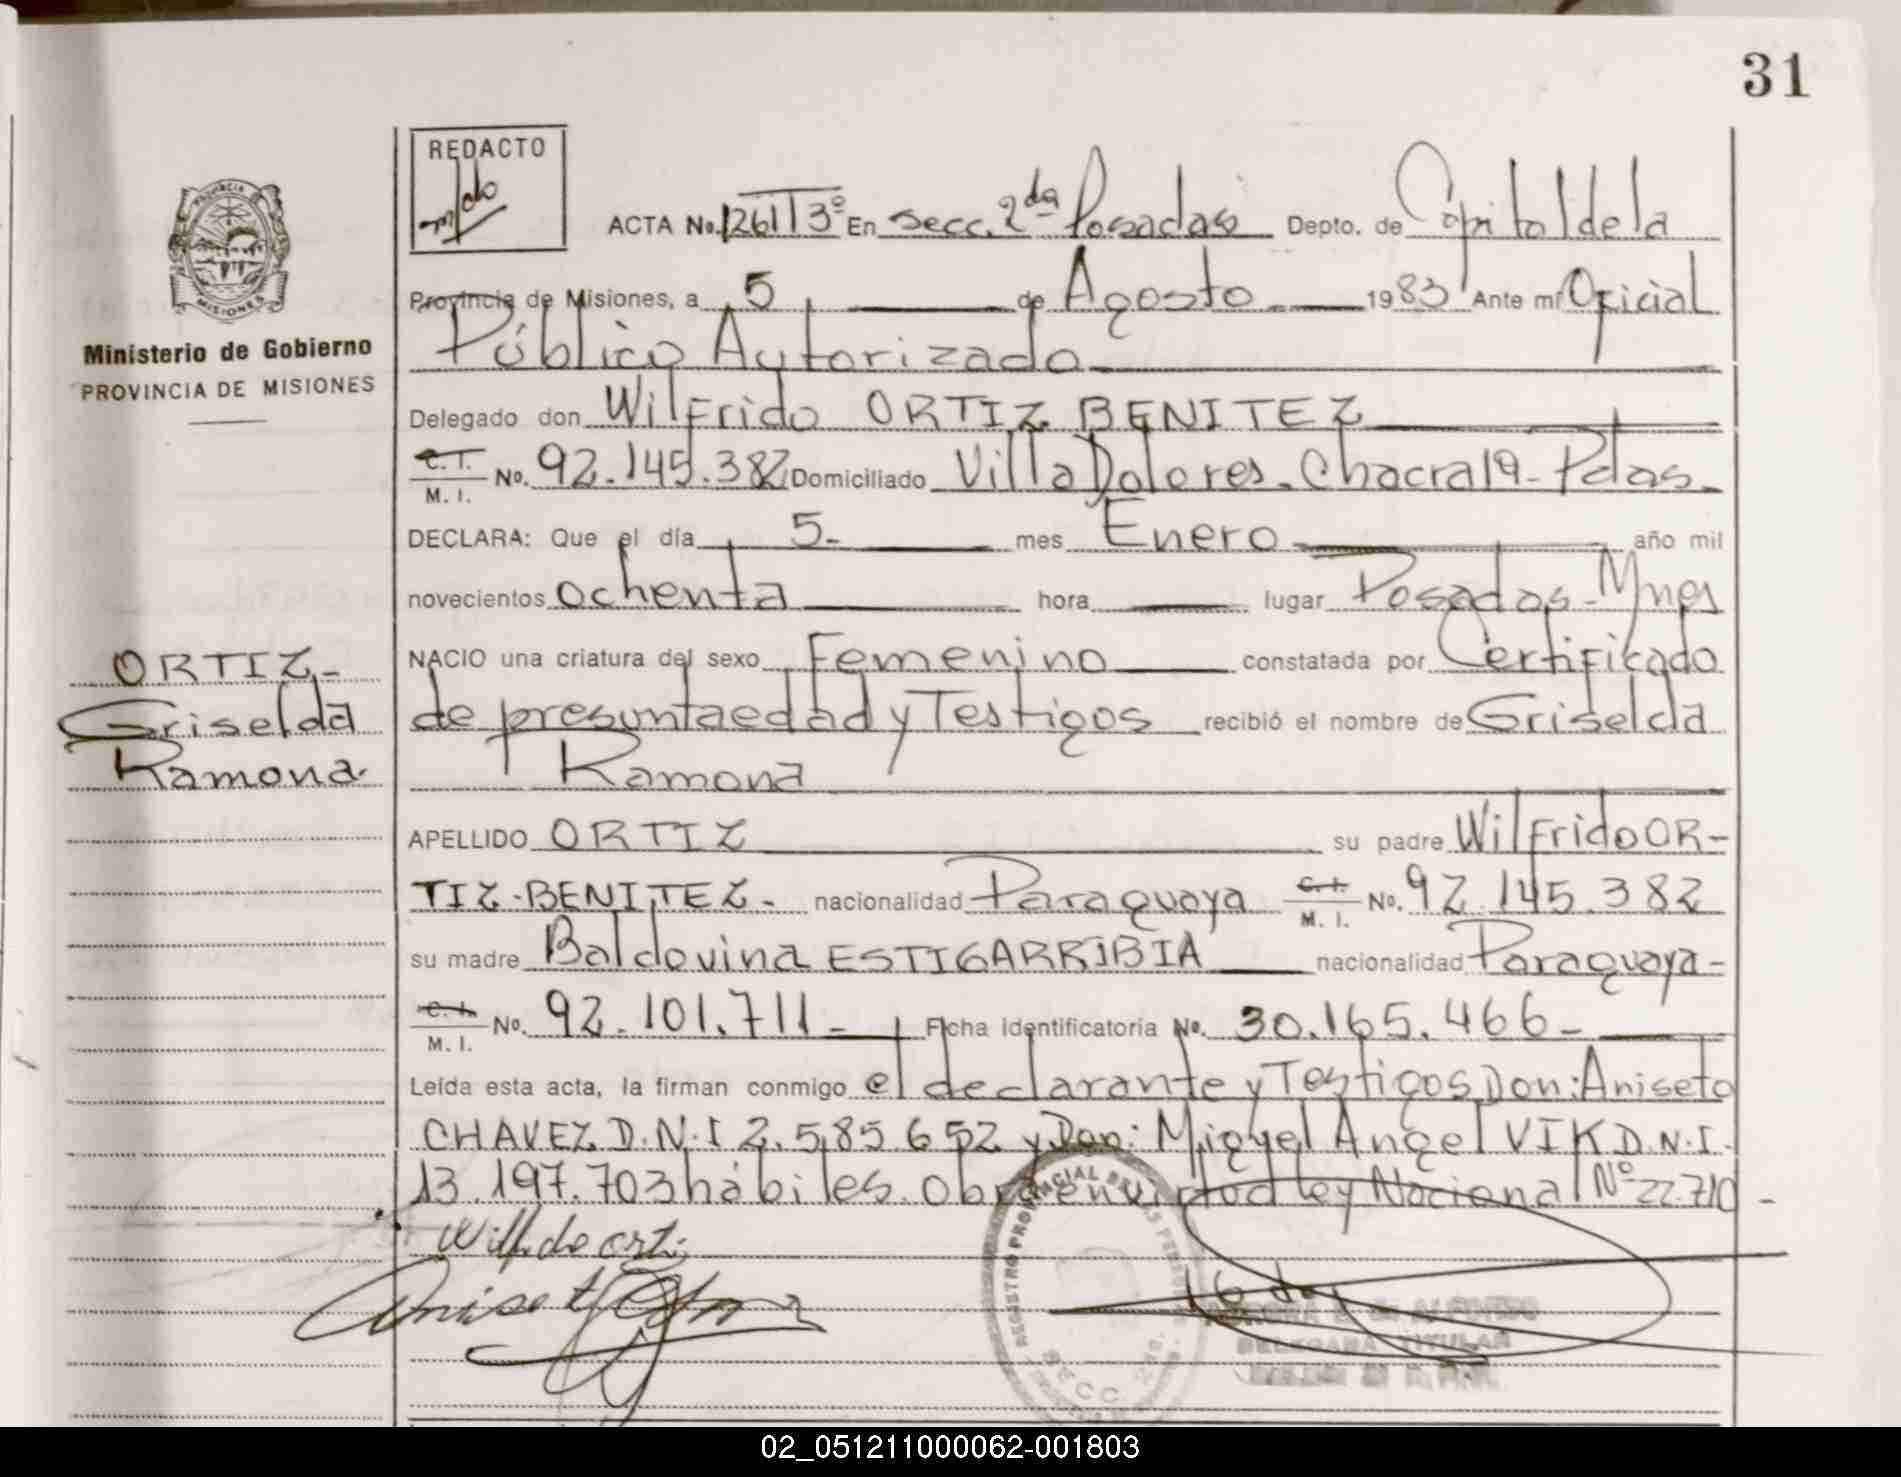 31
REDACTO
ACTA No. 1261 T 3º En Secc. 2da Posadas Depto. de Capital de la
Provincia de Misiones, a 5 de Agosto 1983 Ante mi Oficial
Público Autorizado
Ministerio de Gobierno
PROVINCIA DE MISIONES
Delegado don Wilfrido ORTIZ BENITEZ
C.I. M. I. No. 92.145.382 Domiciliado Villa Dolores. Chacra 19- Pdas.
DECLARA: Que el día 5- mes Enero año mil
novecientos ochenta hora lugar Posadas-Mnes
NACIO una criatura del sexo Femenino constatada por Certificado
de presunta edad y Testigos recibió el nombre de Griselda
Ramona
ORTIZ-
Griselda
Ramona.
APELLIDO ORTIZ su padre Wilfrido OR-
TIZ-BENITEZ- nacionalidad Paraguaya C.I. M. I. No. 92.145.382
su madre Baldovina ESTIGARRIBIA nacionalidad Paraguaya-
C.I. M. I. No. 92.101.711- Ficha identificatoria No. 30.165.466-
Leída esta acta, la firman conmigo el declarante y Testigos Don: Aniseto
CHAVEZ D.N.I 2.585.652 y Don: Miguel Angel VIK D.N.I.
13.197.703 hábiles. Obra en virtud Ley Nacional Nº 22.710-
REGISTRO PROVINCIAL DE LAS PERSONAS
SECC. 2da.
DELEGADA TITULAR
02_051211000062-001803